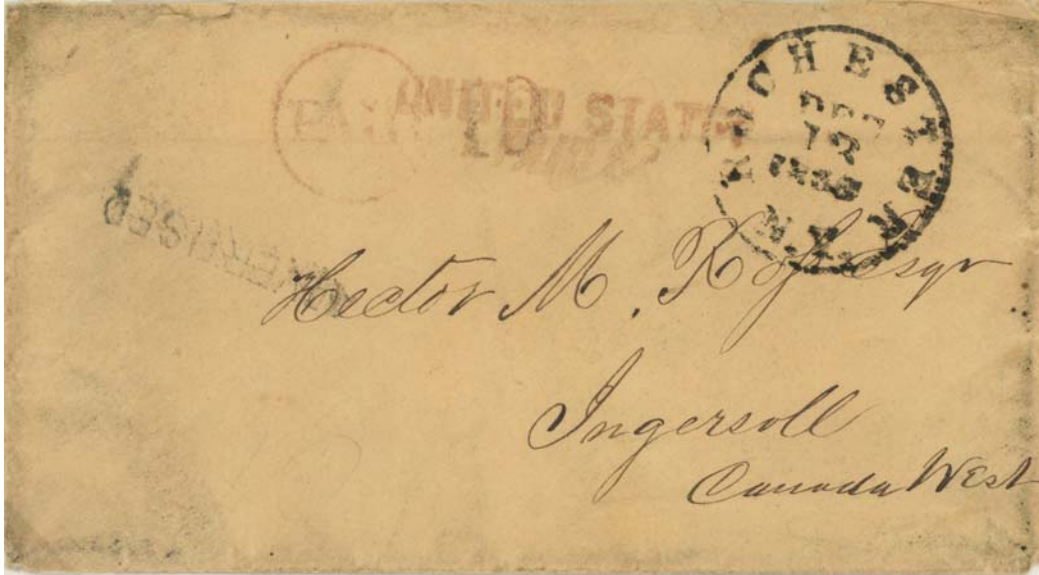 PAID
UNITED STATES
10
ROCHESTER N.Y.
DEC
12
ADVERTISED
Hector M. Roſs Esqr
Ingersoll
Canada West